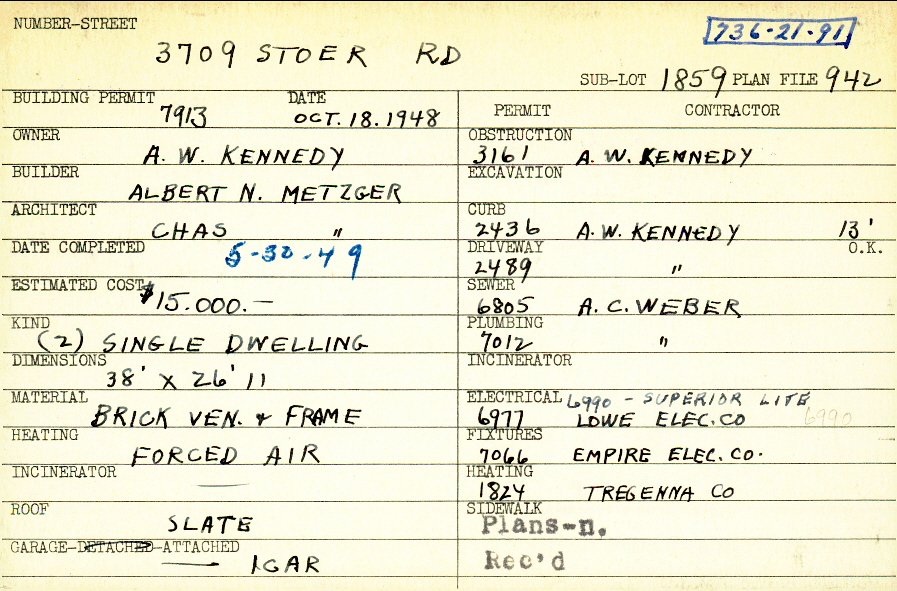 NUMBER-STREET
736-21-91
3709 STOER RD
SUB-LOT 1859 PLAN FILE 942
BUILDING PERMIT DATE
7913 OCT. 18. 1948
OWNER
A. W. KENNEDY
BUILDER
ALBERT N. METZGER
ARCHITECT
CHAS "
DATE COMPLETED
5-30-49
ESTIMATED COST
$15.000.—
KIND
(2) SINGLE DWELLING
DIMENSIONS
38' X 26' 11
MATERIAL
BRICK VEN. & FRAME
HEATING
FORCED AIR
INCINERATOR
—
ROOF
SLATE
GARAGE-DETACHED-ATTACHED
1 CAR
PERMIT CONTRACTOR
OBSTRUCTION
3161 A. W. KENNEDY
EXCAVATION
CURB
2436 A. W. KENNEDY 13'
DRIVEWAY O.K.
2489 "
SEWER
6805 A. C. WEBER
PLUMBING
7012 "
INCINERATOR
ELECTRICAL 6990 - SUPERIOR LITE
6977 LOWE ELEC. CO 6990
FIXTURES
7066 EMPIRE ELEC. CO.
HEATING
1824 TREGENNA CO
SIDEWALK
Plans-n.
Rec'd